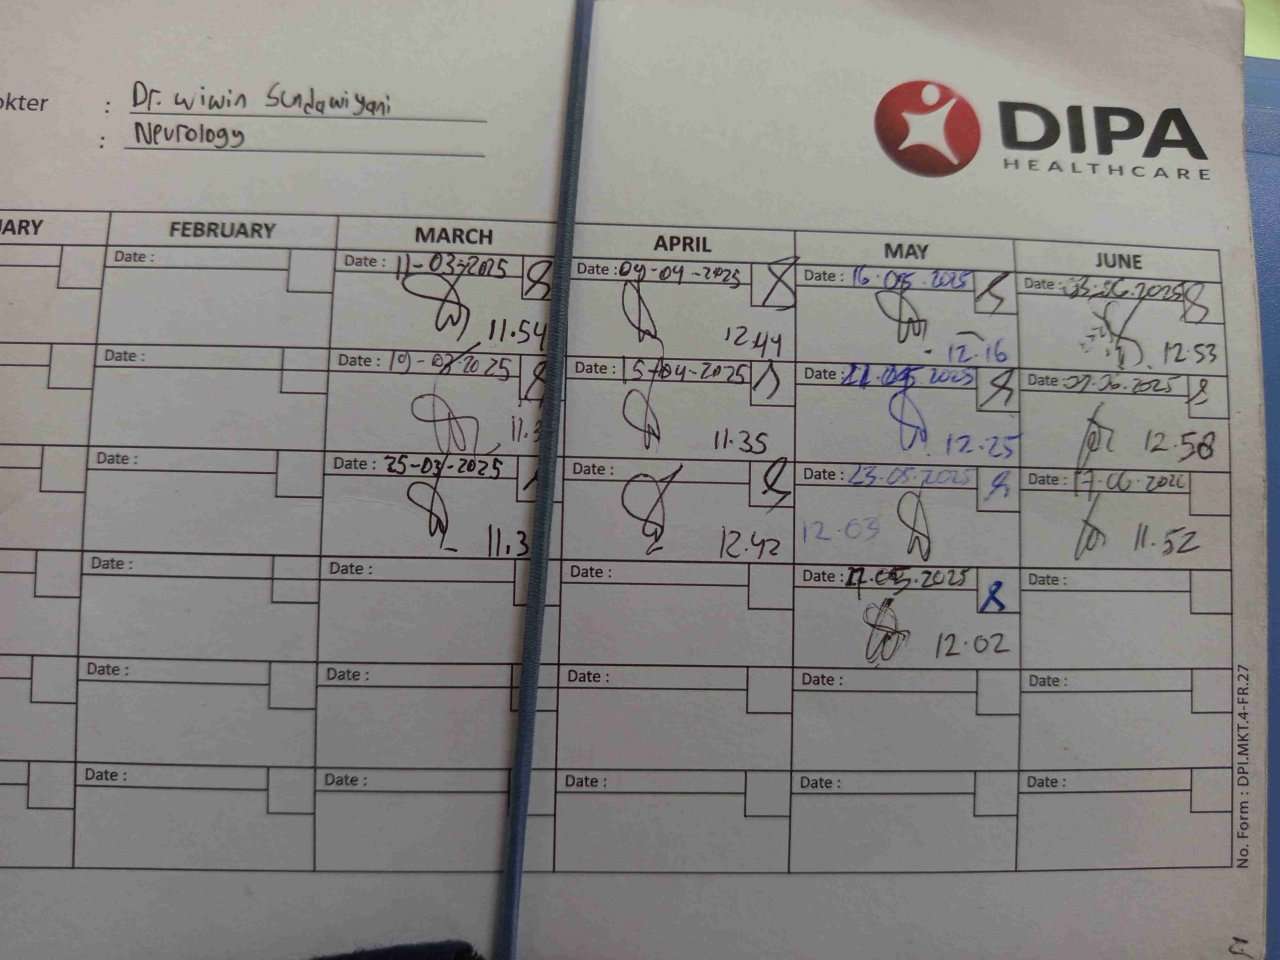 okter : Dr. Wiwin Sundawiyani
: Neurology
DIPA
HEALTHCARE
UARY FEBRUARY MARCH APRIL MAY JUNE
Date : Date : 11-03-2025 Date : 09-04-2025 Date : 16.05.2025 Date :
11.54 12.44 12.16 12.53
Date : Date : 19-03-2025 Date : 15-04-2025 Date : 05 2025 Date : 2025
11.3 11.35 12.25 12.58
Date : Date : 25-03-2025 Date : Date : 23.05.2025 Date : 17.06.202
11.3 12.42 12.03 11.52
Date : Date : Date : Date : 05.2025 Date :
12.02
Date : Date : Date : Date : Date :
Date : Date : Date : Date : Date :
No. Form : DPI.MKT.4-FR.27